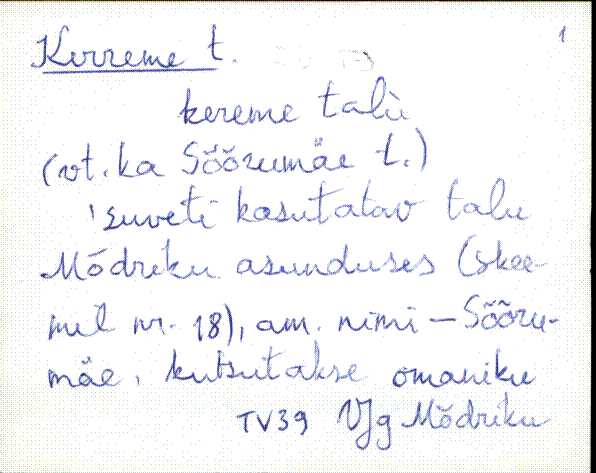 1
Kerreme t.
kereme talù
(vt. ka Sõõrumäe t.)
'suveti kasutatav talu
Mõdriku asunduses (skee-
mil nr. 18), am. nimi – Sõõru-
mäe, kutsutakse omaniku
TV39 VJg Mõdriku